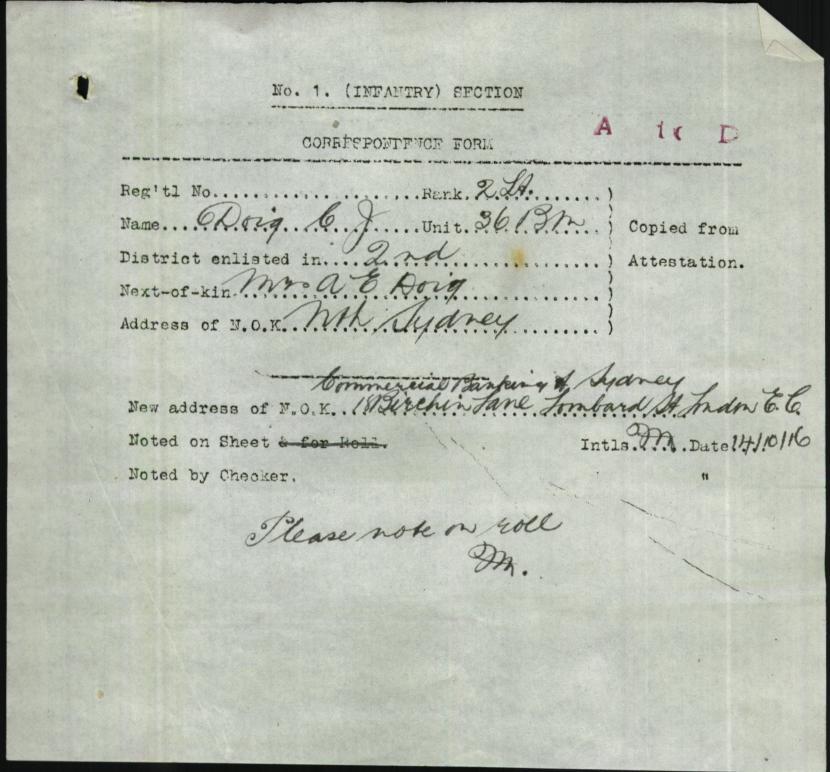 No. 1. (INFANTRY) SECTION
A D
CORRESPONDENCE FORM
Reg'tl No......................Rank. 2 Lt. ........)
Name.... Doig C J .....Unit. 36 Bn ..) Copied from
District enlisted in.... 2nd ...................) Attestation.
Next-of-kin. Mrs A E Doig ..................)
Address of N.O.K.. Nth Sydney ............)
Commercial Banking of Sydney
New address of N.O.K.. 18 Birchin Lane Lombard St London E.C.
Noted on Sheet & for Roll. Intls. M. .Date 14/10/16
Noted by Checker. "
Please note on roll
M.